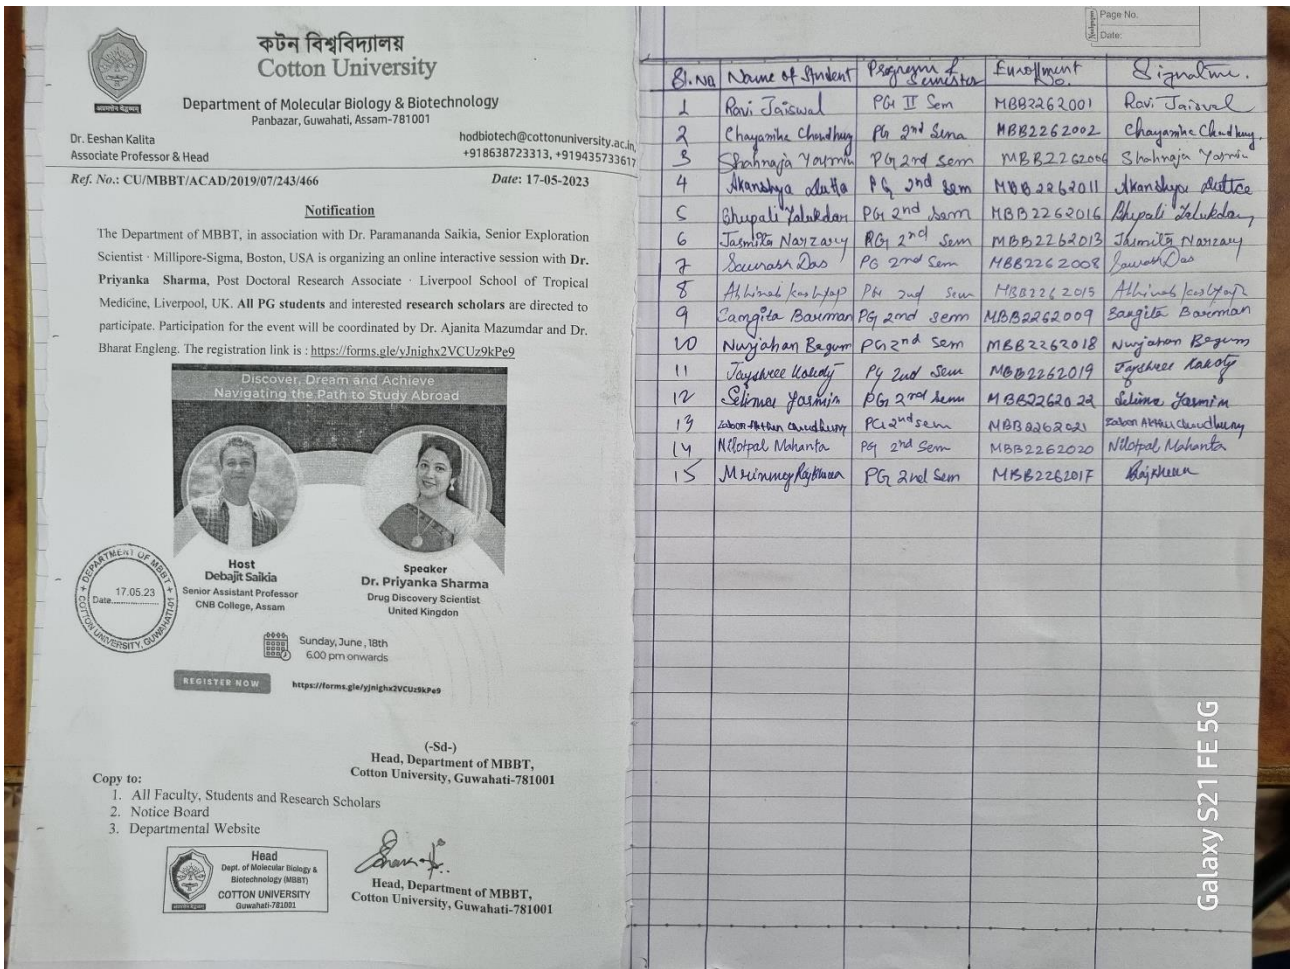 কটন বিশ্ববিদ্যালয়
Cotton University
Department of Molecular Biology & Biotechnology
Panbazar, Guwahati, Assam-781001
Dr. Eeshan Kalita
Associate Professor & Head
hodbiotech@cottonuniversity.ac.in,
+918638723313, +919435733617
Ref. No.: CU/MBBT/ACAD/2019/07/243/466 Date: 17-05-2023
Notification
The Department of MBBT, in association with Dr. Paramananda Saikia, Senior Exploration
Scientist · Millipore-Sigma, Boston, USA is organizing an online interactive session with Dr.
Priyanka Sharma, Post Doctoral Research Associate · Liverpool School of Tropical
Medicine, Liverpool, UK. All PG students and interested research scholars are directed to
participate. Participation for the event will be coordinated by Dr. Ajanita Mazumdar and Dr.
Bharat Engleng. The registration link is : https://forms.gle/yJnighx2VCUz9kPe9
Discover, Dream and Achieve
Navigating the Path to Study Abroad
Host
Debajit Saikia
Senior Assistant Professor
CNB College, Assam
Speaker
Dr. Priyanka Sharma
Drug Discovery Scientist
United Kingdon
DEPARTMENT OF MBBT
Date 17.05.23
COTTON UNIVERSITY, GUWAHATI-01
Sunday, June , 18th
6.00 pm onwards
REGISTER NOW
https://forms.gle/yjnighx2VCUz9kPe9
(-Sd-)
Head, Department of MBBT,
Cotton University, Guwahati-781001
Copy to:
1. All Faculty, Students and Research Scholars
2. Notice Board
3. Departmental Website
Head
Dept. of Molecular Biology &
Biotechnology (MBBT)
COTTON UNIVERSITY
Guwahati-781001
Head, Department of MBBT,
Cotton University, Guwahati-781001
Page No.
Date:
Sl. No Name of Student Program & Semister Enrollment No. Signature.
1 Ravi Jaiswal PG II Sem MBB2262001 Ravi Jaiswal
2 Chayanika Choudhury PG 2nd Sem MBB2262002 Chayanika Choudhury.
3 Shahnaja Yasmin PG 2nd Sem MBB2262006 Shahnaja Yasmin
4 Akanshya Dutta PG 2nd Sem MBB2262011 Akanshya Dutta
5 Bhupali Talukdar PG 2nd Sem MBB2262016 Bhupali Talukdar
6 Jasmita Narzary PG 2nd Sem MBB2262013 Jasmita Narzary
7 Saurabh Das PG 2nd Sem MBB2262008 Saurabh Das
8 Abhinab Kashyap PG 2nd Sem MBB2262015 Abhinab Kashyap
9 Sangita Barman PG 2nd Sem MBB2262009 Sangita Barman
10 Nurjahan Begum PG 2nd Sem MBB2262018 Nurjahan Begum
11 Jayshree Kakoty PG 2nd Sem MBB2262019 Jayshree Kakoty
12 Selima Yasmin PG 2nd Sem MBB2262022 Selima Yasmin
13 Choudhury PG 2nd sem MBB2262021 Choudhury
14 Nilotpal Mahanta PG 2nd Sem MBB2262020 Nilotpal Mahanta
15 Mrinmoy Rajkhowa PG 2nd Sem MBB2262017 Rajkhowa
Galaxy S21 FE 5G